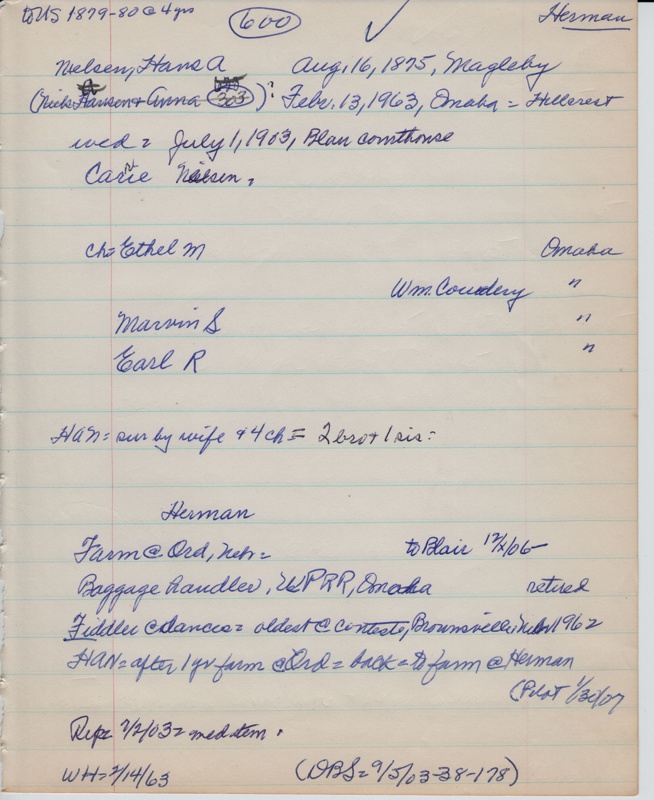 to US 1879-80 @ 4 yrs 600 ✓ Herman
Nielsen, Hans A Aug. 16, 1875, Magleby
(Niels Hansen & Anna 303): Febr. 13, 1963, Omaha = Hillcrest
wed = July 1, 1903, Blair courthouse
Carrie Nielsen,
ch = Ethel M Omaha
Wm. "
Marvin S "
Earl R "
HAN = sur by wife & 4 ch = 2 bro & 1 sis =
Herman
Farm @ Ord, Nebr = to Blair 12/x/06
Baggage handler, UPRR, Omaha retired
Fiddler @ dances = oldest @ contests, Brownsville, Nebr 1962
HAN = after 1 yr farm @ Ord = back = to farm @ Herman
(Pilot 1/30/07
7/2/03 =
WH = 2/14/63 (DBS = 9/5/03-38-178)